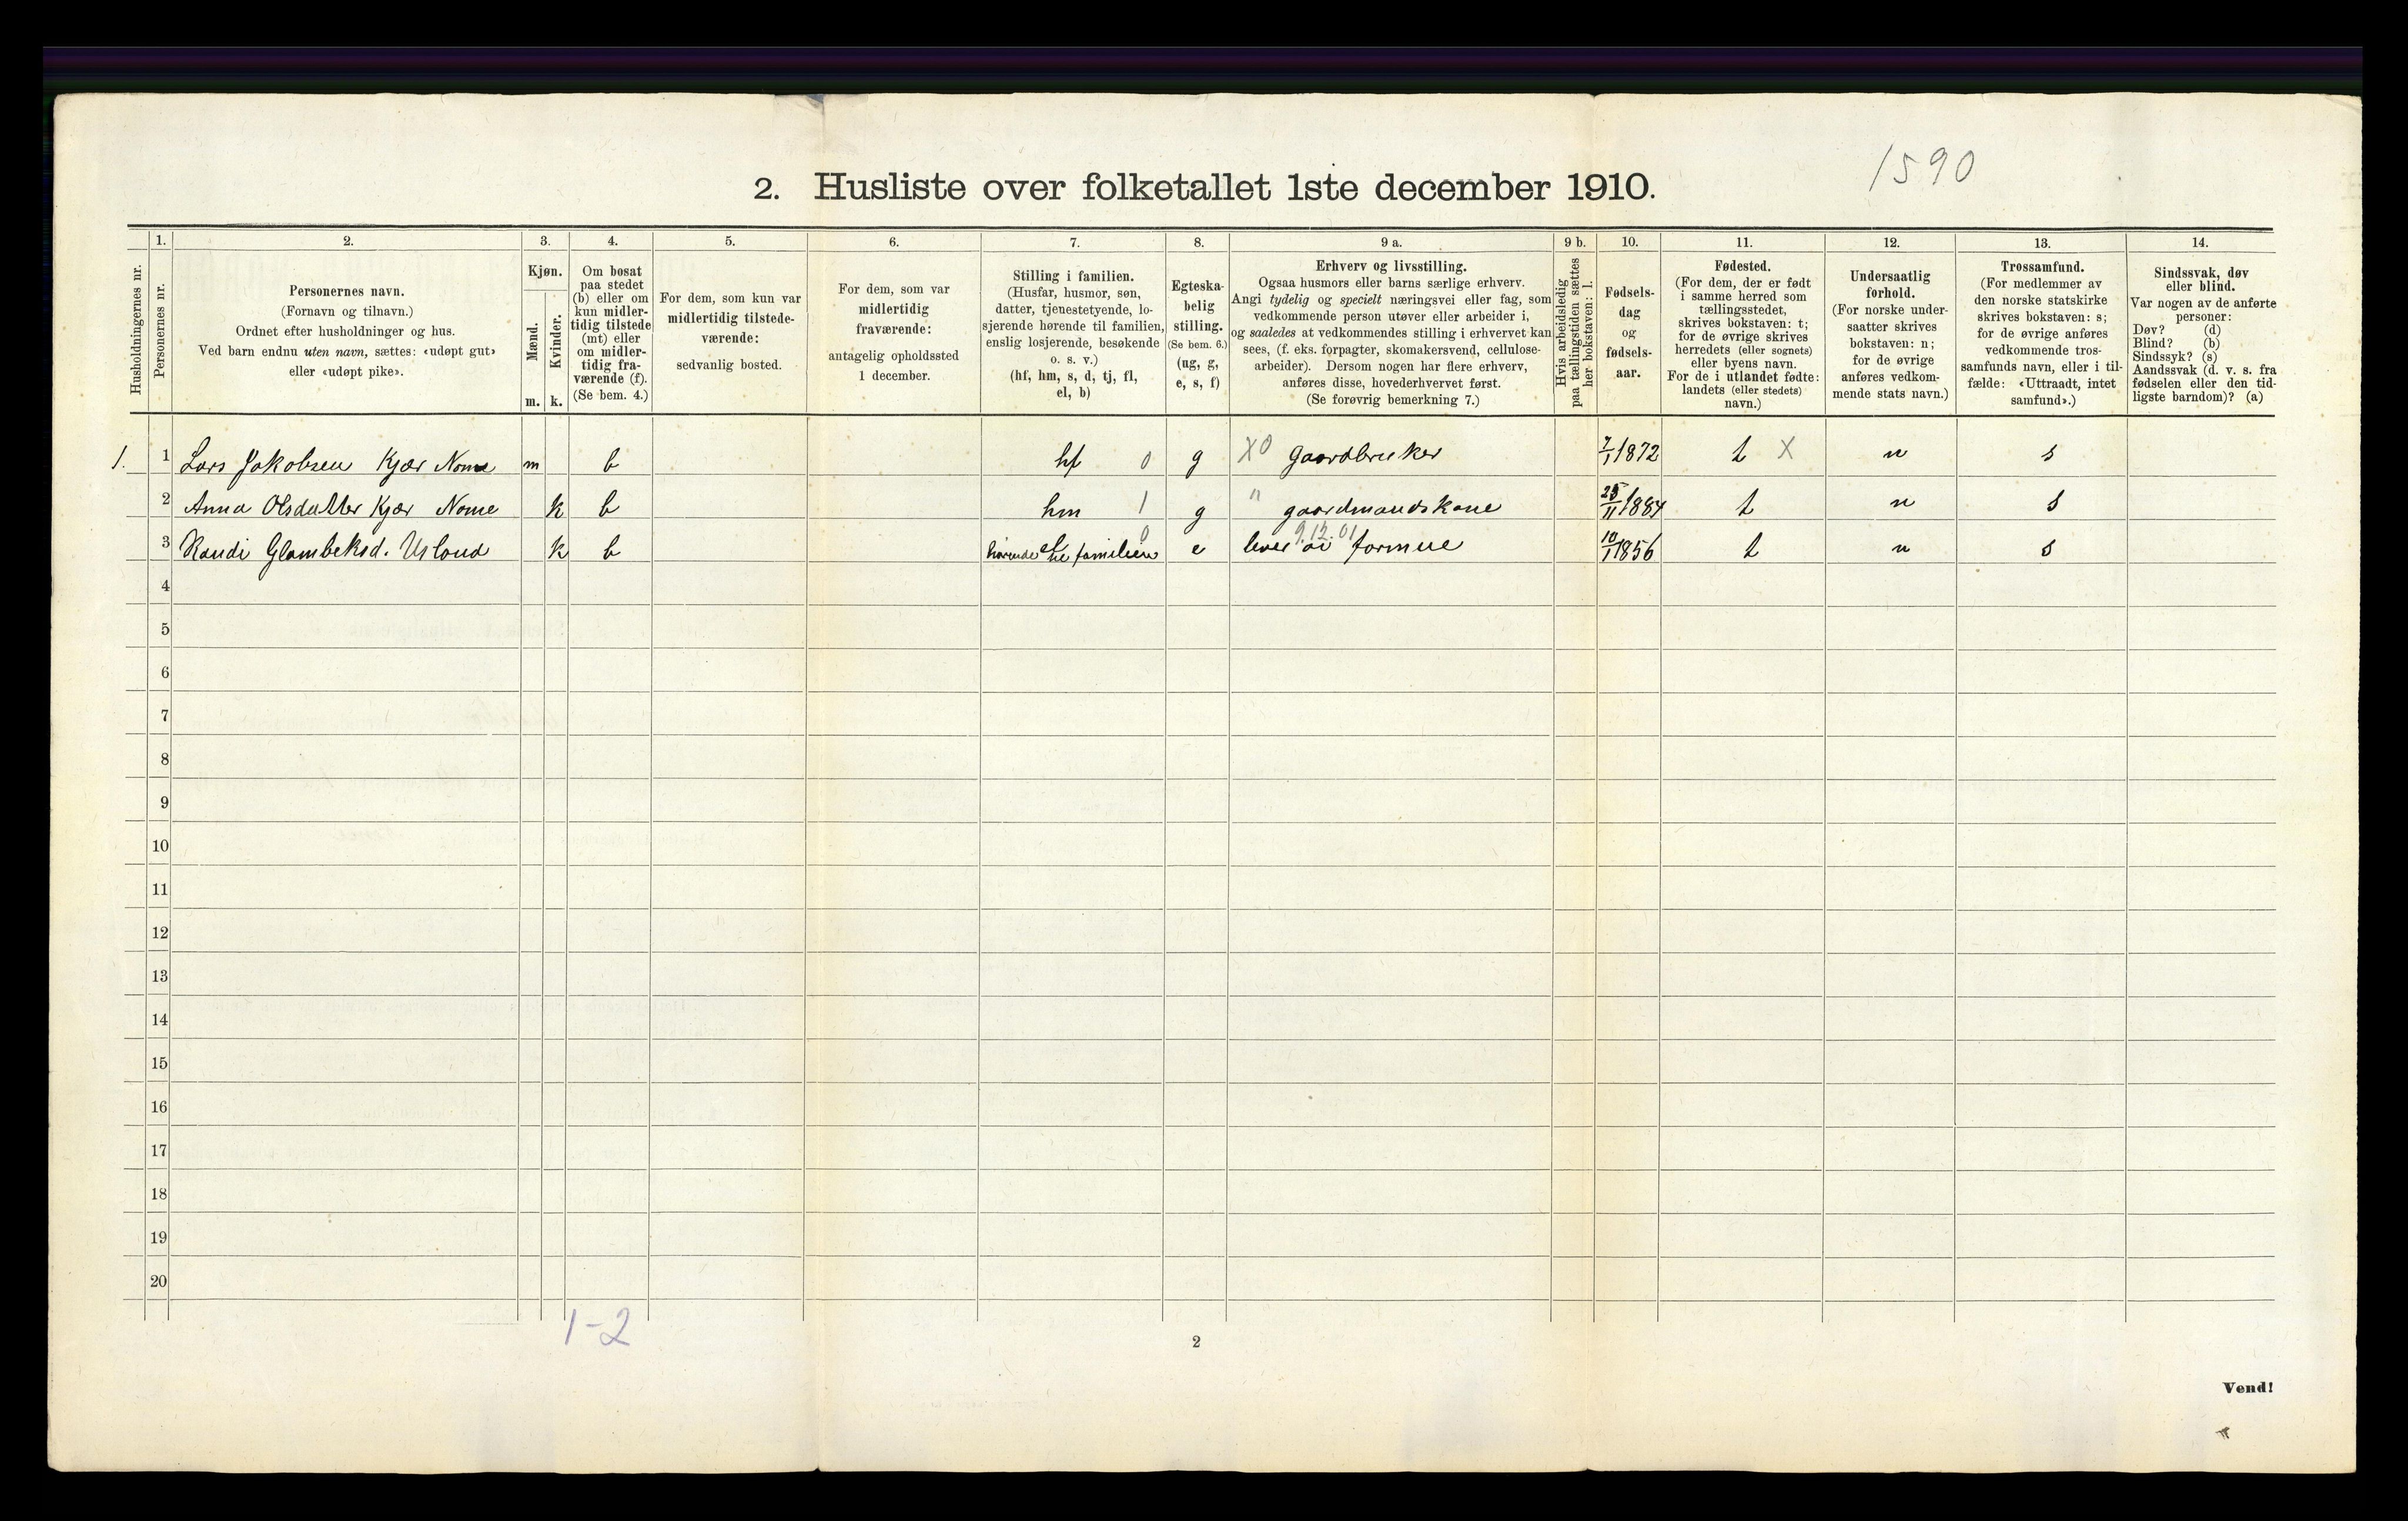 1590
2. Husliste over folketallet 1ste december 1910.
1. 2. 3. 4. 5. 6. 7. 8. 9 a. 9 b. 10. 11. 12. 13. 14.
Husholdningernes nr.
Personernes nr.
Personernes navn.
(Fornavn og tilnavn.)
Ordnet efter husholdninger og hus.
Ved barn endnu uten navn, sættes: «udøpt gut»
eller «udøpt pike».
Kjøn.
Mænd.
m.
Kvinder.
k.
Om bosat
paa stedet
(b) eller om
kun midler-
tidig tilstede
(mt) eller
om midler-
tidig fra-
værende (f).
(Se bem. 4.)
For dem, som kun var
midlertidig tilstede-
værende:
sedvanlig bosted.
For dem, som var
midlertidig
fraværende:
antagelig opholdssted
1 december.
Stilling i familien.
(Husfar, husmor, søn,
datter, tjenestetyende, lo-
sjerende hørende til familien,
enslig losjerende, besøkende
o. s. v.)
(hf, hm, s, d, tj, fl,
el, b)
Egteska-
belig
stilling.
(Se bem. 6.)
(ug, g,
e, s, f)
Erhverv og livsstilling.
Ogsaa husmors eller barns særlige erhverv.
Angi tydelig og specielt næringsvei eller fag, som
vedkommende person utøver eller arbeider i,
og saaledes at vedkommendes stilling i erhvervet kan
sees, (f. eks. forpagter, skomakersvend, cellulose-
arbeider). Dersom nogen har flere erhverv,
anføres disse, hovederhvervet først.
(Se forøvrig bemerkning 7.)
Hvis arbeidsledig
paa tællingstiden sættes
her bokstaven: l.
Fødsels-
dag
og
fødsels-
aar.
Fødested.
(For dem, der er født
i samme herred som
tællingsstedet,
skrives bokstaven: t;
for de øvrige skrives
herredets (eller sognets)
eller byens navn.
For de i utlandet fødte:
landets (eller stedets)
navn.)
Undersaatlig
forhold.
(For norske under-
saatter skrives
bokstaven: n;
for de øvrige
anføres vedkom-
mende stats navn.)
Trossamfund.
(For medlemmer av
den norske statskirke
skrives bokstaven: s;
for de øvrige anføres
vedkommende tros-
samfunds navn, eller i til-
fælde: «Uttraadt, intet
samfund».)
Sindssvak, døv
eller blind.
Var nogen av de anførte
personer:
Døv? (d)
Blind? (b)
Sindssyk? (s)
Aandssvak (d. v. s. fra
fødselen eller den tid-
ligste barndom)? (a)
1. 1 Lars Jakobsen Kjær Nome m b hf 0 g X0 Gaardbruker 7/1 1872 t X n s
2 Anna Olsdatter Kjær Nome k b hm 1 g " gaardmandskone 25/11 1884 t n s
3 Randi Glambeksd. Usland k b hørende til familien 0 e lever av formue 9.12.01 10/1 1856 t n s
4
5
6
7
8
9
10
11
12
13
14
15
16
17
18
19
20
1-2
2
Vend!